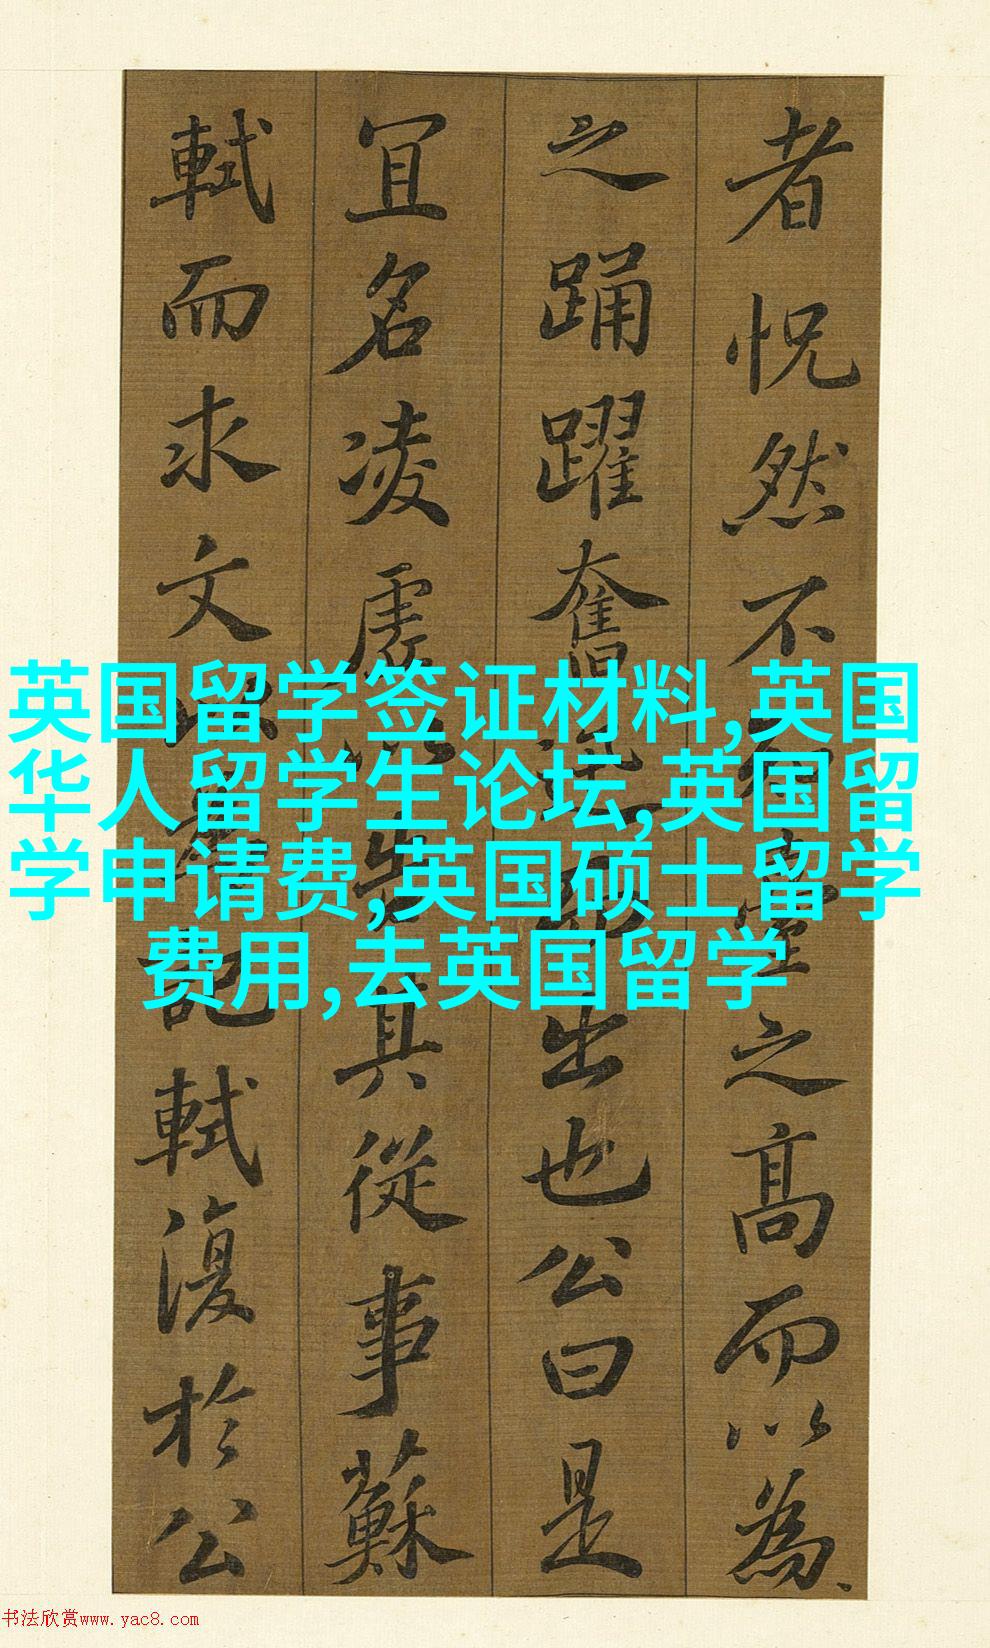 者怳然不臺之高而以為
之踊躍奮迅而出也公曰是
冝名凌虛以其從事蘇
軾而求文以記軾復於公
英国留学签证材料,英国
华人留学生论坛,英国留
学申请费,英国硕士留学
费用,去英国留学
书法欣赏www.yac8.com